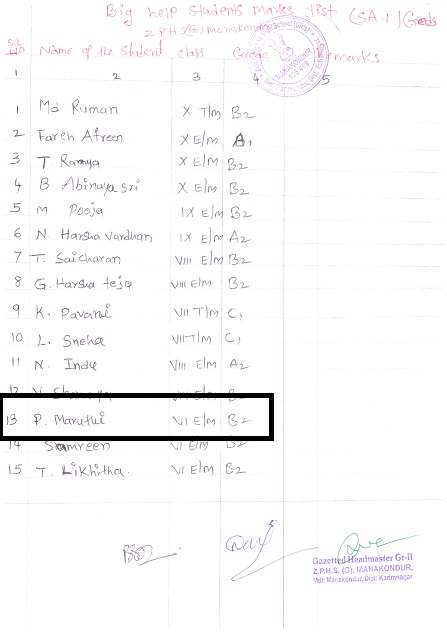 Big help students marks list (SA-1) Grades
Z P H S (G) Manakondur
S.L No Name of the Student class Grade marks
1 2 3 4 5
1 Md Ruman X T/m B2
2 Farch Afreen X E/m A1
3 T. Ramya X E/m B2
4 B. Abinaya sri X E/m B2
5 M Pooja IX E/m B2
6 N. Harsha vardhan IX E/m A2
7 T. Saicharan VIII E/m B2
8 G. Harsha teja VIII E/m B2
9 K. Pavani VII T/m C1
10 L. Sneha VII T/m C1
11 N. Indu VIII E/m A2
12 E/m B2
13 P. Maruthi VI E/m B2
14 Samreen VI E/M B2
15 T. Likhitha. VI E/M B2
Gazetted Headmaster Gr-II
Z.P.H.S. (G). MANAKONDUR,
Mdl: Manakondur, Dist: Karimnagar